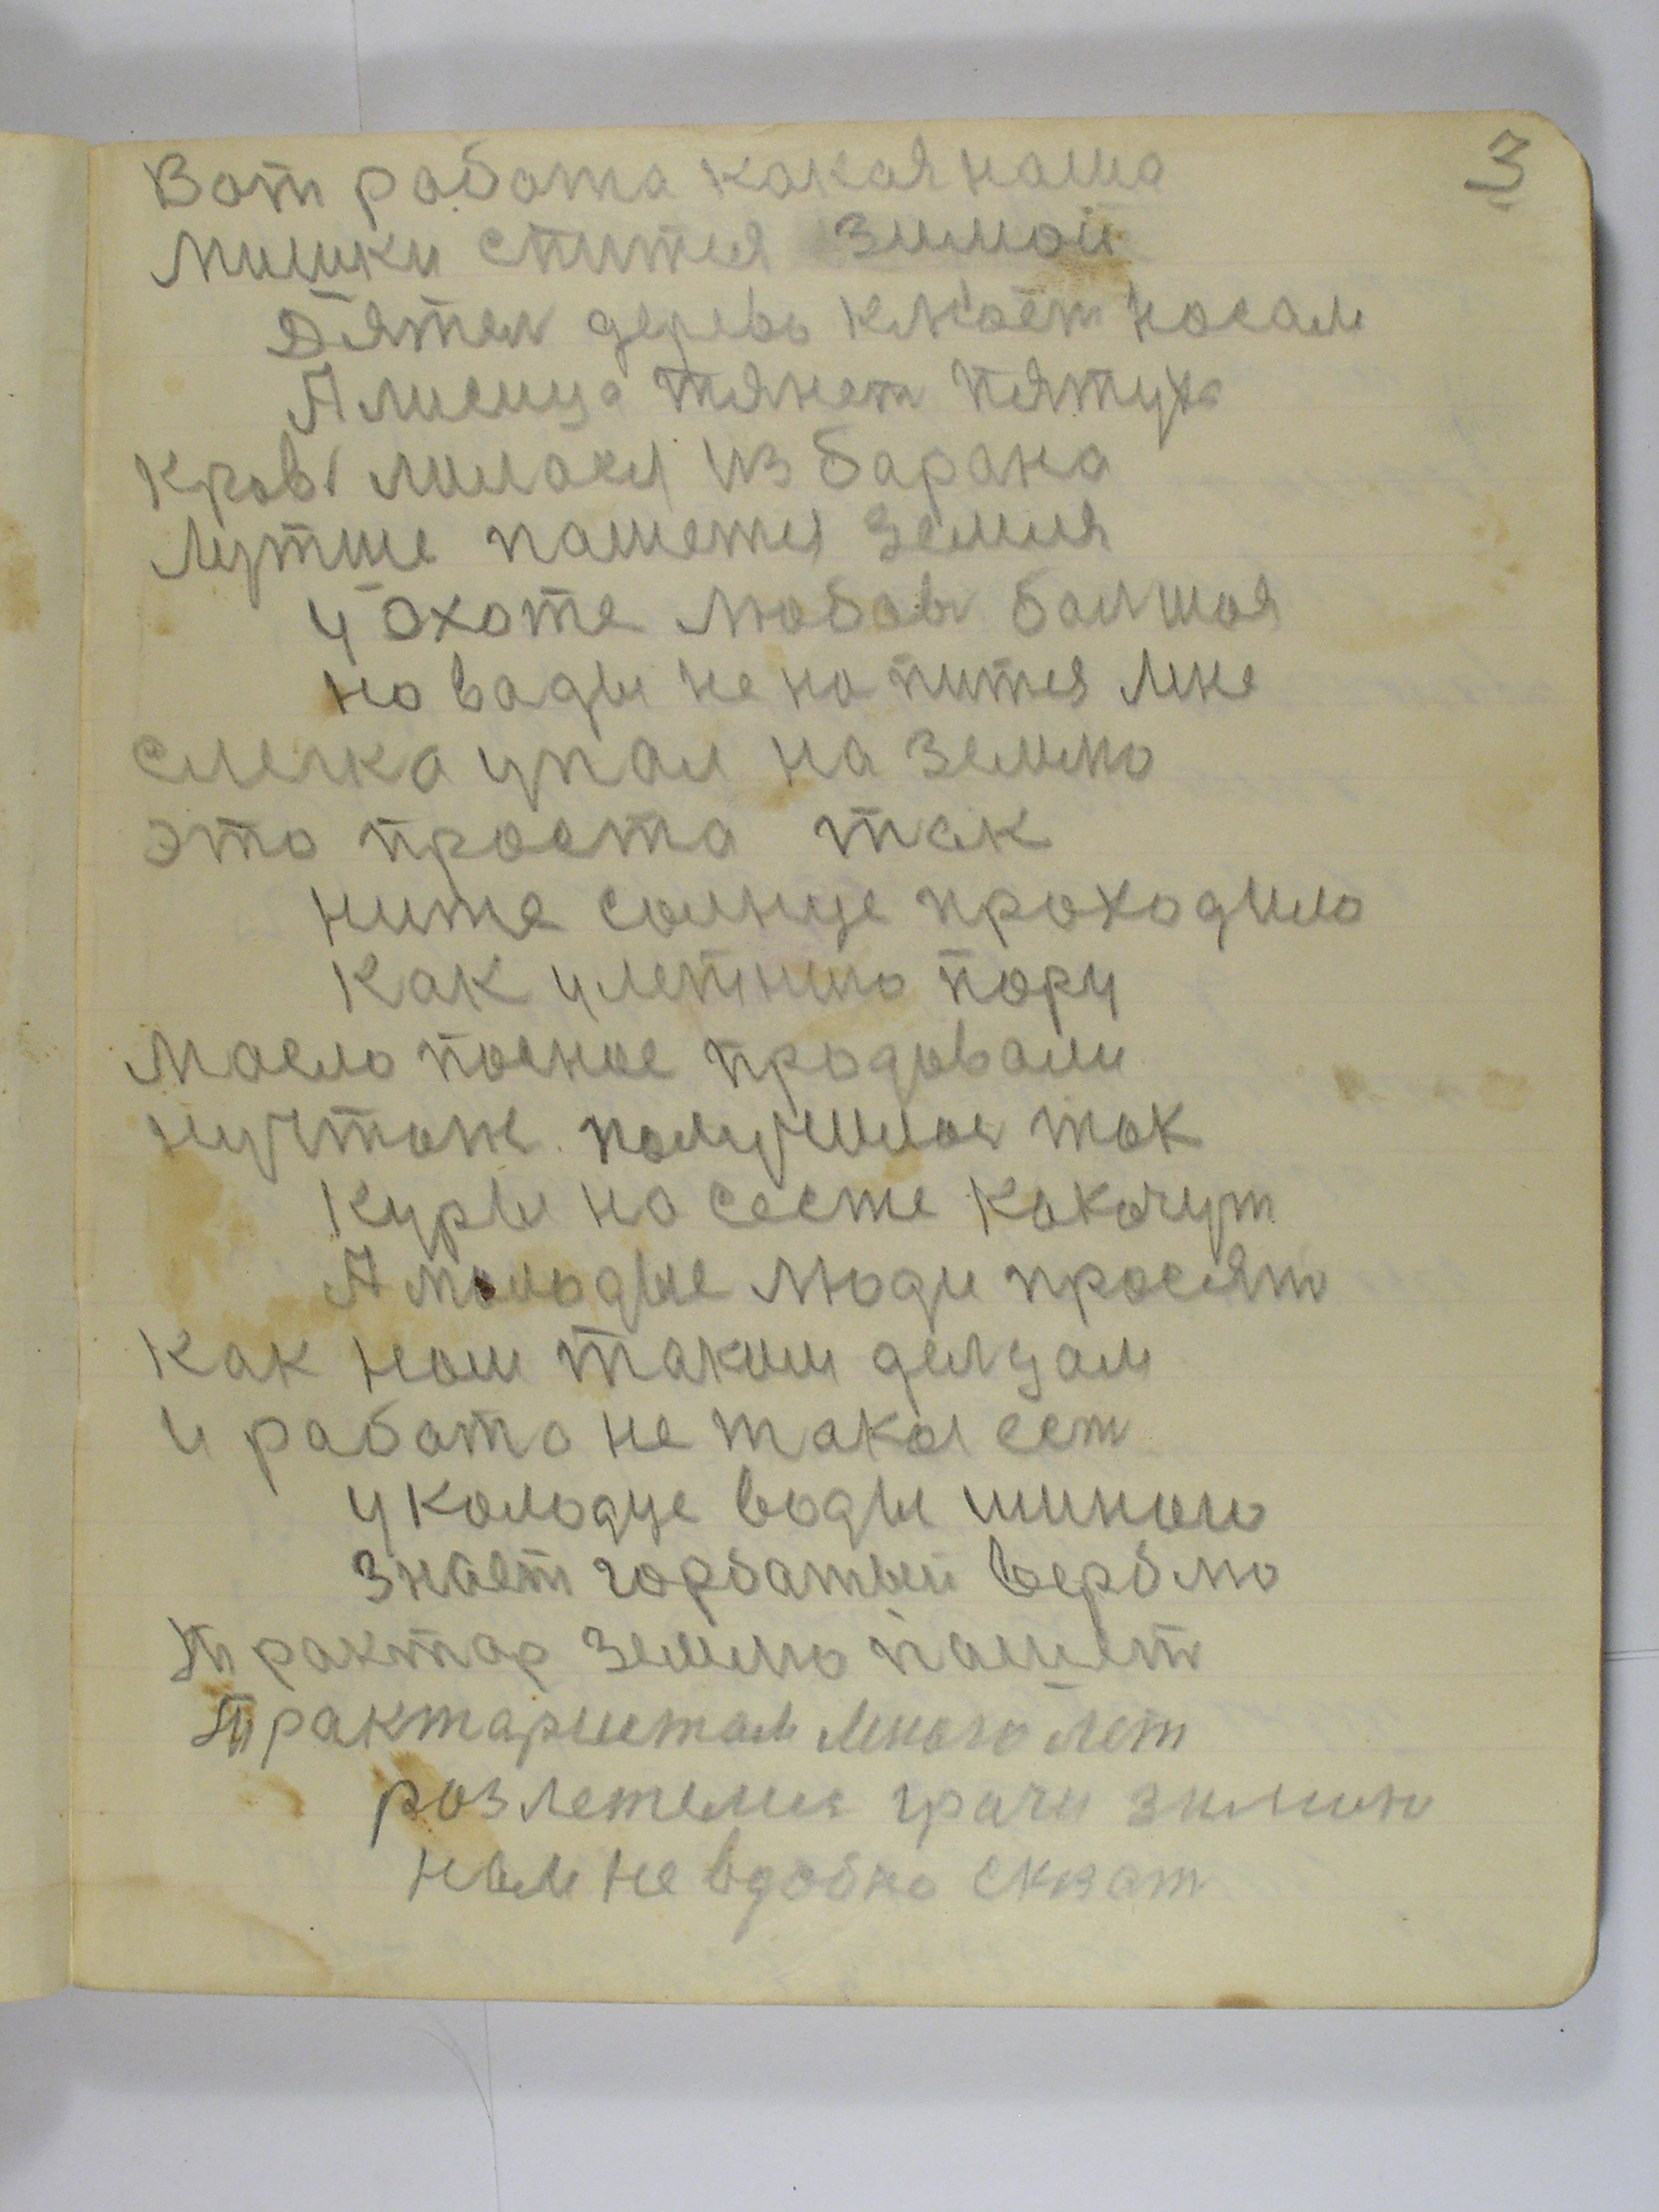 3
Вот работа какая наша
Мишки спится зимой
Дятел дерево клюёт носам
А лисица тянет пятуха
Кровь лилася из барана
Лутше пашется земля
У охоте любовь балшая
но вады не напится мне
слегка упал на землю
это проста так
ниже солнце проходило
Как у летнию пору
Масло посное продовали
ну чтож получилось так
Куры на сесте какочут
А молодые люди просят
Как нам таким делцам
и работа не такая ест
у колодце воды
знает горбатый верблю
Трактар землю пашет
Трактаристам много лет
розлетелися грачи
нам не вдобно